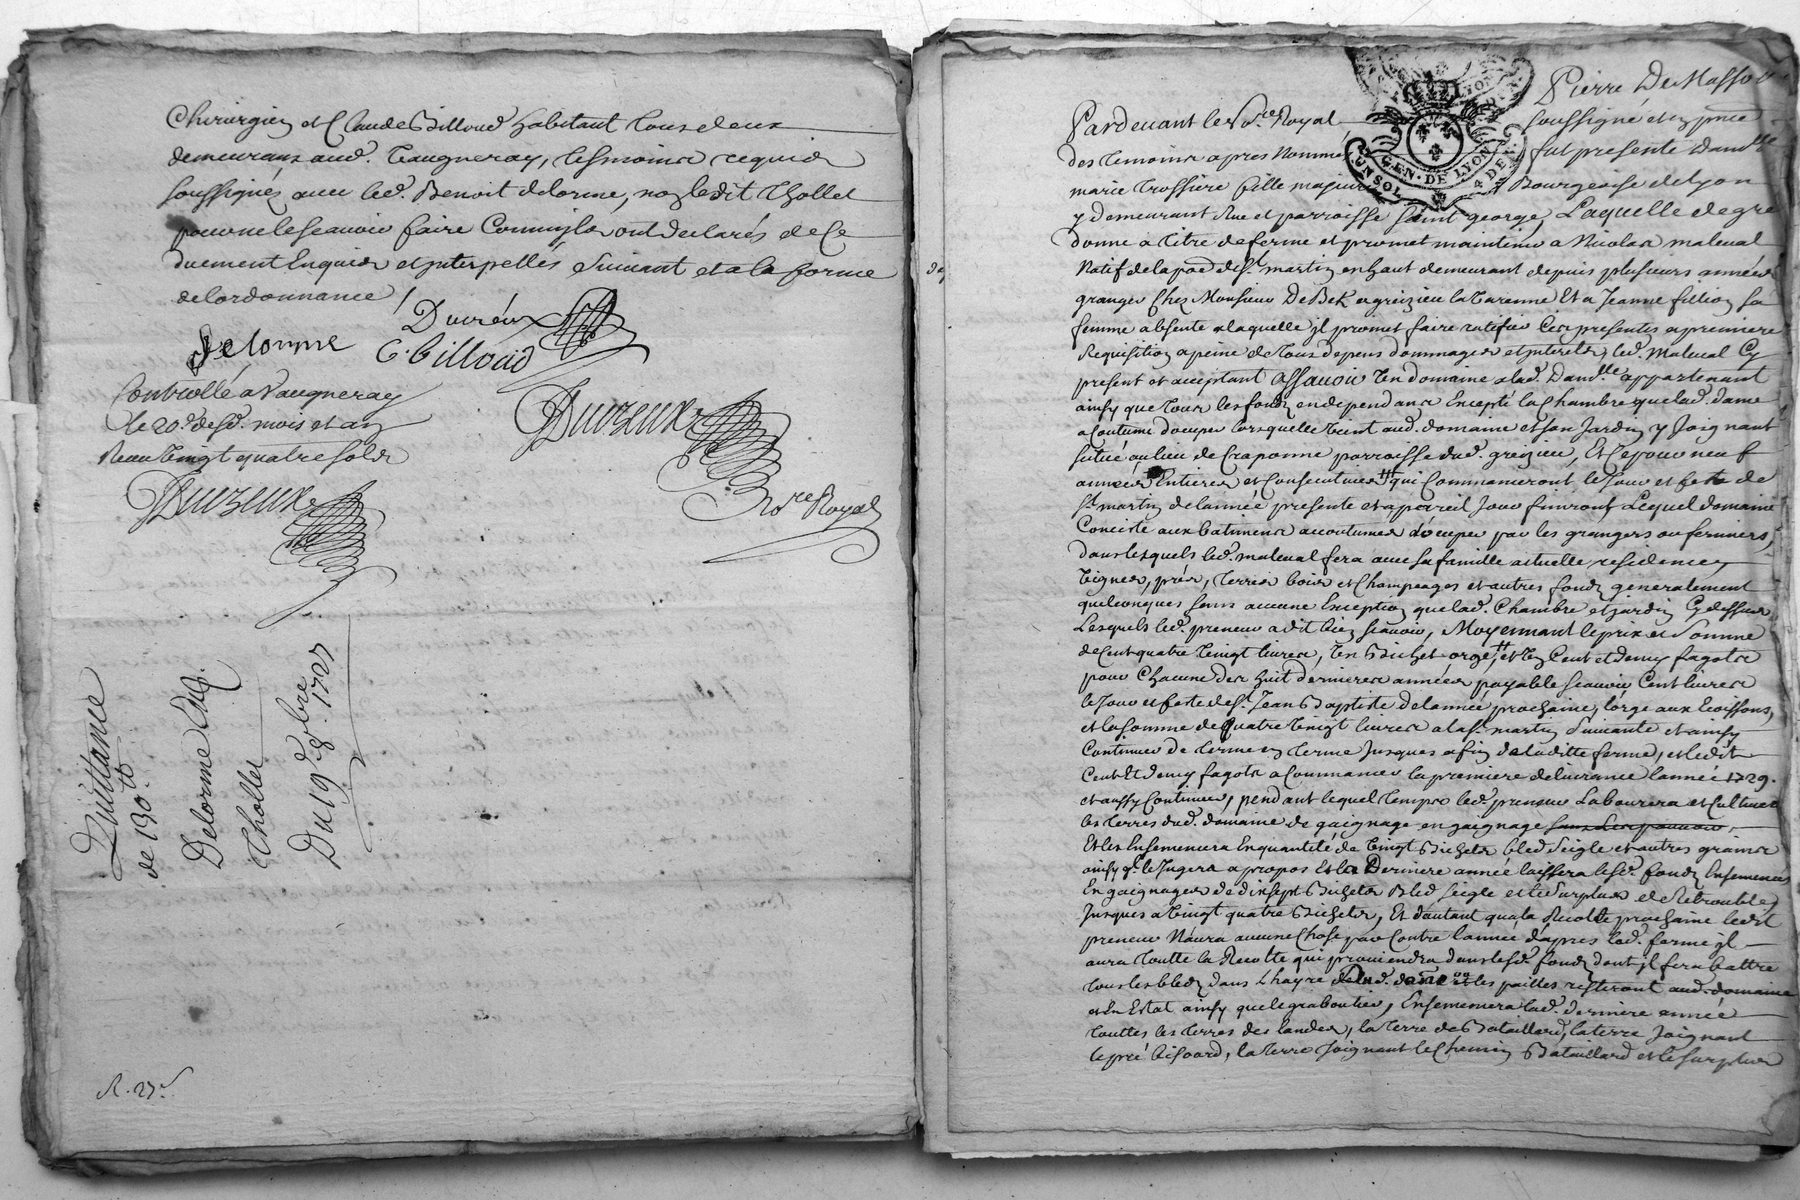 Chirurgien et Claude Billoud habitant tous deux
demeurans aud. Vaugneray, tesmoins requis
soussignés avec led. Benoit delorme, non ledit Thollet
pour ne le scavoir faire Comm'ils ont declarés de ce
duement Enquis et interpellés Suivant et a la forme
de l'ordonnance /
Ducreux
delorme C. billoud
Controllé a Vaugneray
le 20e. desd. mois et an
Receu Vingt quatre sols
Ducreux
Ducreux
No.re Royal
Quittance
de 190 tt
Delorme
Thollet
Du 19e. 8bre. 1727
R. 27
Pierre De Masso
Pardevant le No.re Royal soussigné et en pnce
des temoins apres Nommés fut presente Dam.lle
marie Trossiere fille majeure Bourgeoise de Lyon
y demeurant Rue et parroisse Saint george, Laquelle de gré
donne a titre de ferme et promet maintenir a Nicolas maleval
Natif de la par. de St. martin en haut demeurant depuis plusieurs années
granger Chez Monsieur De Bek a greizieu la Varenne Et a Jeanne fillion sa
femme absente a laquelle il promet faire ratifier Ces presentes a premiere
Requisition a peine de tous depens dommages et interets, led. Maleval Cy
present et acceptant assavoir Un domaine a lad. Dam.lle appartenant
ainsy que tous les fonds en dependans Excepté la Chambre que lad. dame
a Coutume d'ocuper lorsquelle Vient aud. domaine et son Jardin y Joignant
situé au lieu de Craponne parroisse dud. greizieu, Et Ce pour neuf
années Entieres et Consecutives qui Commanceront le Jour et feste de
St. martin de l'année presente et a pareil Jour finiront Lequel domaine
Conciste aux batimens accoutumés d'ocuper par les grangers ou fermiers,
dans lesquels led. maleval fera avec sa famille actuelle residence,
Vignes, prés, terres bois et Champeages et autres fonds generalement
quelconques sans aucune Exception que lad. Chambre et jardin Cy dessus
Lesquels led. preneur a dit bien scavoir, Moyennant le prix et Somme
de Cent quatre Vingt livres, Un Bichet orge, et Un Cent et demy fagots
pour Chacune des huit dernieres années payable scavoir Cent livres
le Jour et feste de St. Jean Baptiste de l'année prochaine, l'orge aux moissons,
et la somme de quatre Vingt livres a la St. martin Suivante et ainsy
Continuer de terme en terme Jusques a fin de laditte ferme, et ledit
Cent Et demy fagots a Commancer la premiere delivrance l'année 1729.
et aussy Continuer, pendant lequel temps led. preneur Labourera et Cultivera
les terres dud. domaine de gaignage en gaignage
Et les Ensemencera En quantité de Vingt Bichets bled seigle et autres grains
ainsy q'l le Jugera a propos Et la Derniere année laissera lesd. fonds Ensemencés
En gaignages de dixsept Bichets Bled seigle et le Surplus de Retroubles
Jusques a Vingt quatre Bichets, Et d'autant qu'a la Recolte prochaine ledit
preneur N'aura aucune Chose, par Contre l'année d'apres lad. ferme il
aura toutte la Recolte qui proviendra dans lesd. fonds dont il fera battre
tous les bleds dans Lhayre dud. dome. et les pailles resteront aud. domaine
et En Estat ainsy que le graboutier, Ensemencera lad. derniere année
touttes les terres des landes, la terre de Bataillard, la terre Joignant
le pré bisoard, la terre Joignant le Chemin Bataillard et le surplus